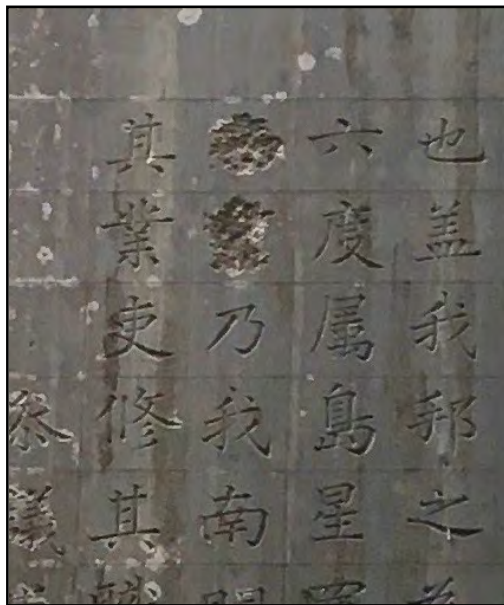 也盖我邦之
六度属島星
乃我南
其業吏修其
議